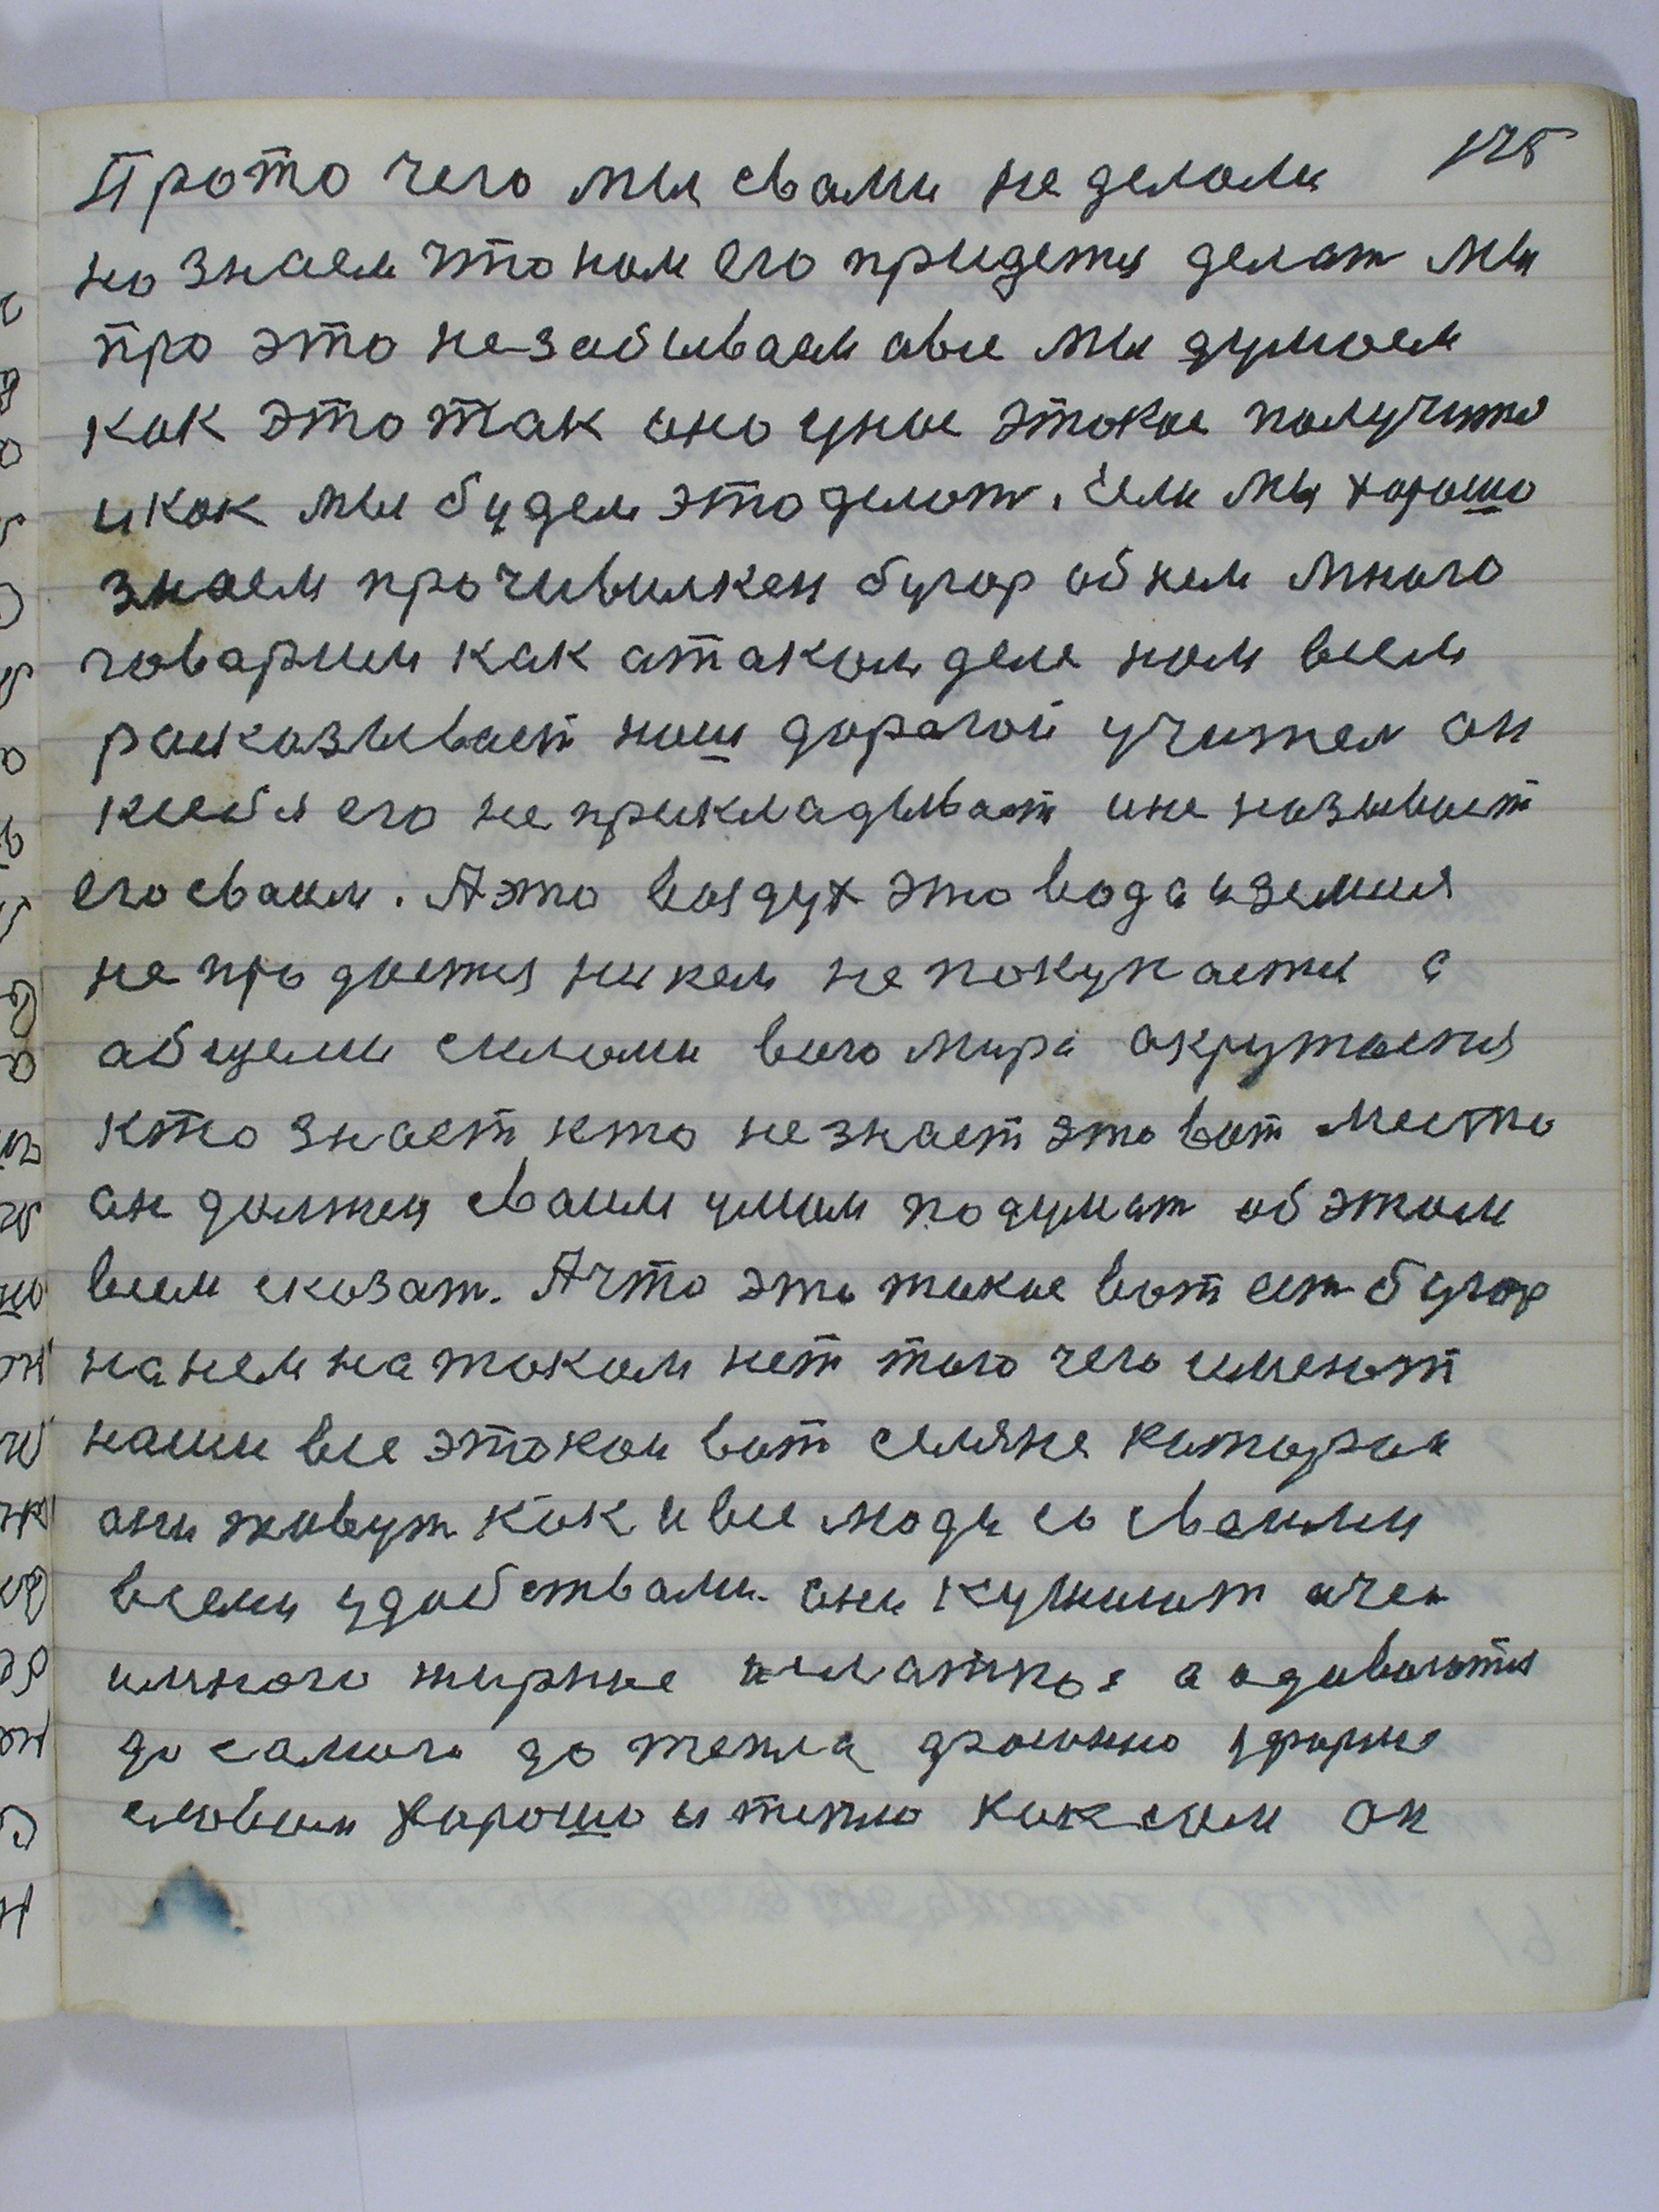 175
Прото чего мы свами не делоли
но знаем что ном его придется делат мы
про это незабываем авсе мы думоем
как это так оно унас этокое получится
икок мы будем это делот. Если мы хорошо
знаем прочивилкен бугор обнем много
говарим как атаком деле ном всем
расказывает нош дорагой учител он
ксебя его неприкладывает ине называет
его сваим. Аэто воздух это вода иземия
не продается никем не покупается а
абщеми силоми всего мира окружается
кто знает кто незнает это вот место
он должен сваим умом подумат об этом
всем сказат. Ачто это такое вот ест бугор
нанем на таком нет того чего имеют
наши все этокои вот селяне каторои
они живут как и все люди со сваими
всеми удобствами. они кушиют очен
имного жирное исладкое а одеваются
до самого до тепла
словом хорошо и тепло как сам он